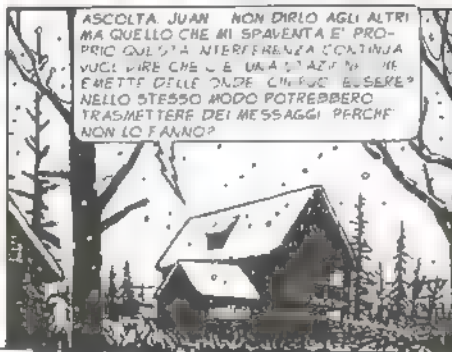 ASCOLTA, JUAN NON DIRLO AGLI ALTRI
MA QUELLO CHE MI SPAVENTA E' PRO-
PRIO QUESTA INTERFERENZA CONTINUA
VUOL DIRE CHE C'E UNA STAZIONE CHE
EMETTE DELLE ONDE CHI PUO' ESSERE?
NELLO STESSO MODO POTREBBERO
TRASMETTERE DEI MESSAGGI PERCHE'
NON LO FANNO?